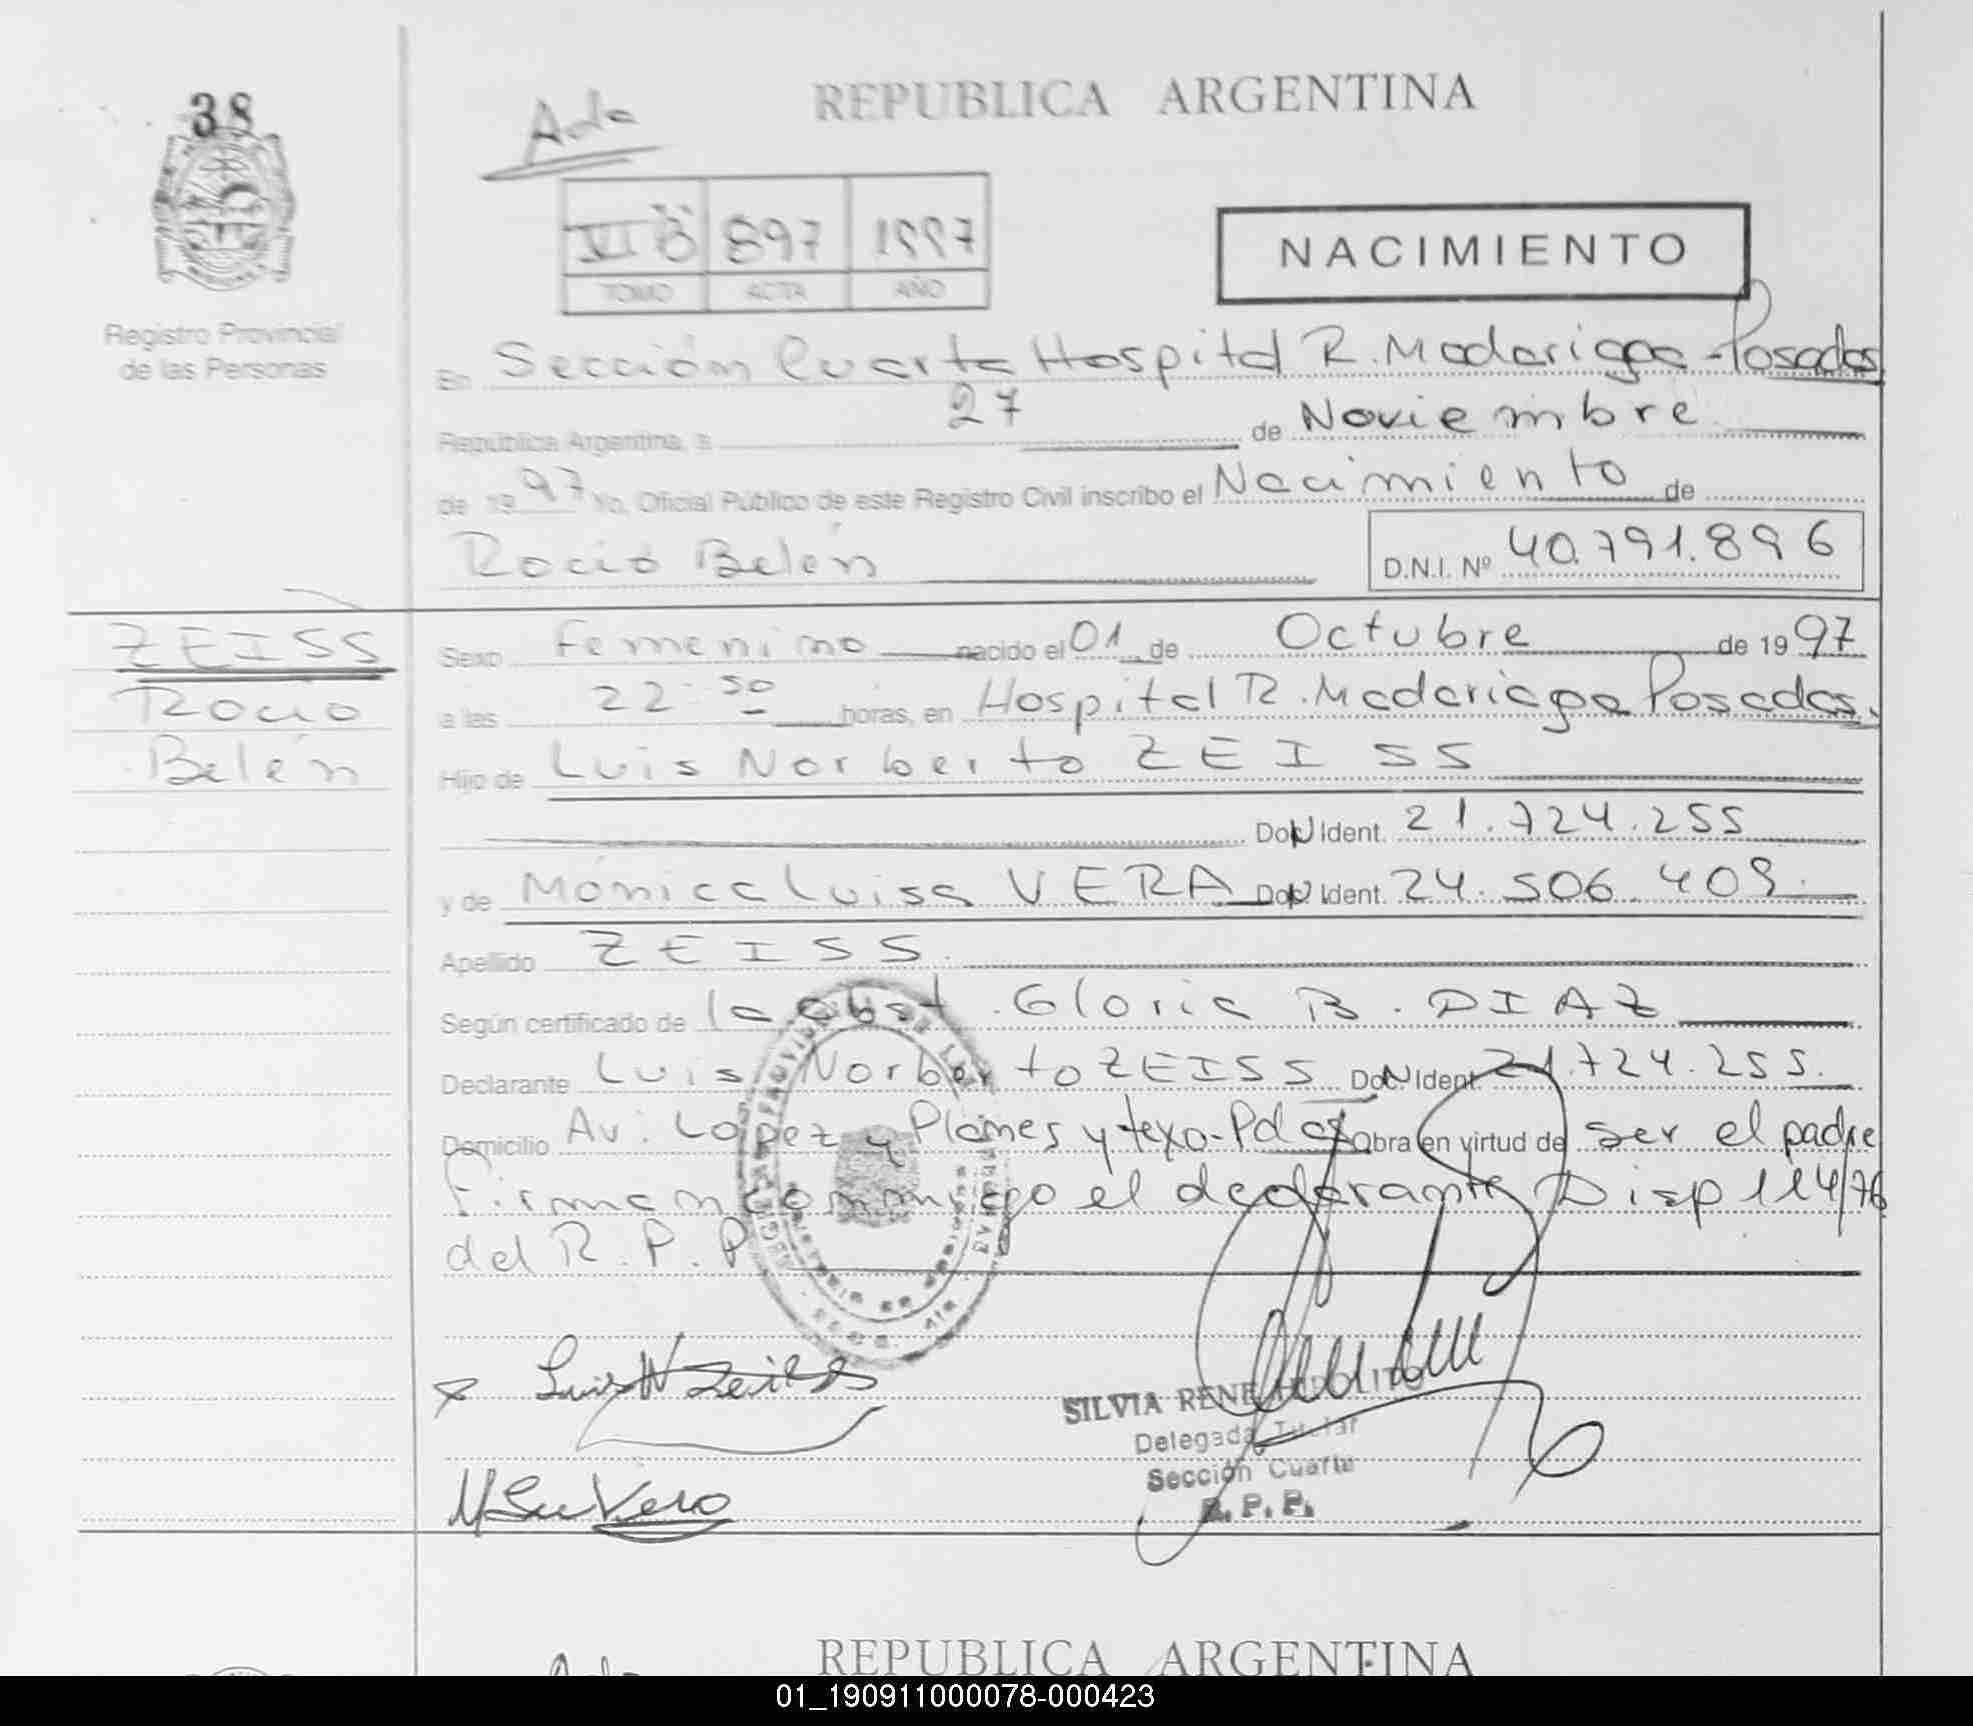 38
Ada
REPUBLICA ARGENTINA
VI B 897 1997
TOMO ACTA AÑO
NACIMIENTO
Registro Provincial
de las Personas
En Sección Cuarta Hospital R. Madariaga - Posadas
República Argentina, a 27 de Noviembre
de 1997 Yo, Oficial Público de este Registro Civil inscribo el Nacimiento de
Rocio Belén
D.N.I. Nº 40.791.896
ZEISS
Rocio
Belén
Sexo Femenino nacido el 01 de Octubre de 1997
a las 22 50 horas, en Hospital R. Madariaga Posadas.
Hijo de Luis Norberto ZEISS
Doc N Ident. 21.724.255
y de Mónica Luisa VERA Doc N Ident. 24.506.409.
Apellido ZEISS
Según certificado de la obst. Gloria B. DIAZ
Declarante Luis Norberto ZEISS Doc N Ident 21.724.255.
Domicilio Av. Lopez y Planes y texo - Pdas Obra en virtud de ser el padre
Firman conmigo el declarante Disp 114/76
del R.P.P
Luis N Zeiss
SILVIA RENE HIPOLITO
Delegada Titular
Sección Cuarta
R. P. P.
Vera
REPUBLICA ARGENTINA
01_190911000078-000423